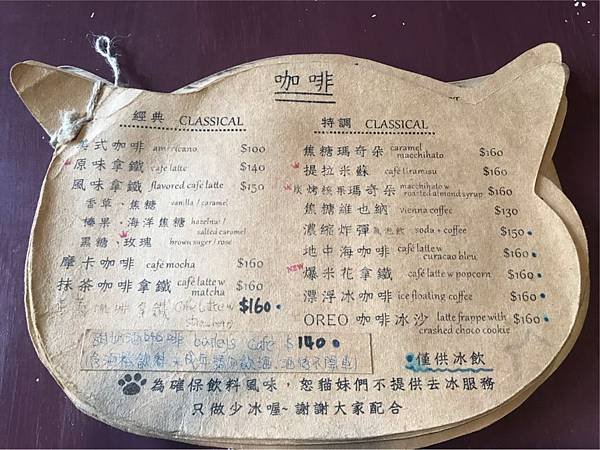 咖啡
經典 CLASSICAL
美式咖啡 americano $100
原味拿鐵 cafe latte $140
風味拿鐵 flavored cafe latte $150
香草、焦糖 vanilla / caramel
榛果、海洋焦糖 hazelnut / salted caramel
黑糖、玫瑰 brown suger / rose
摩卡咖啡 café mocha $160
抹茶咖啡拿鐵 café latte w matcha $160
咖啡拿鐵 cafe latte w $160
咖啡 baileys cafe $140
特調 CLASSICAL
焦糖瑪奇朵 caramel macchihato $160
提拉米蘇 café tiramisu $160
炭烤榛果瑪奇朵 macchihato w roasted almond syrup $160
焦糖維也納 vienna coffee $130
濃縮炸彈 氣泡飲 soda + coffee $150
地中海咖啡 café latte w curacao bleu $160
NEW 爆米花拿鐵 café latte w popcorn $160
漂浮冰咖啡 ice floating coffee $160
OREO 咖啡冰沙 latte frappe with crashed choco cookie $160
僅供冰飲
為確保飲料風味，恕貓妹們不提供去冰服務
只做少冰喔~ 謝謝大家配合